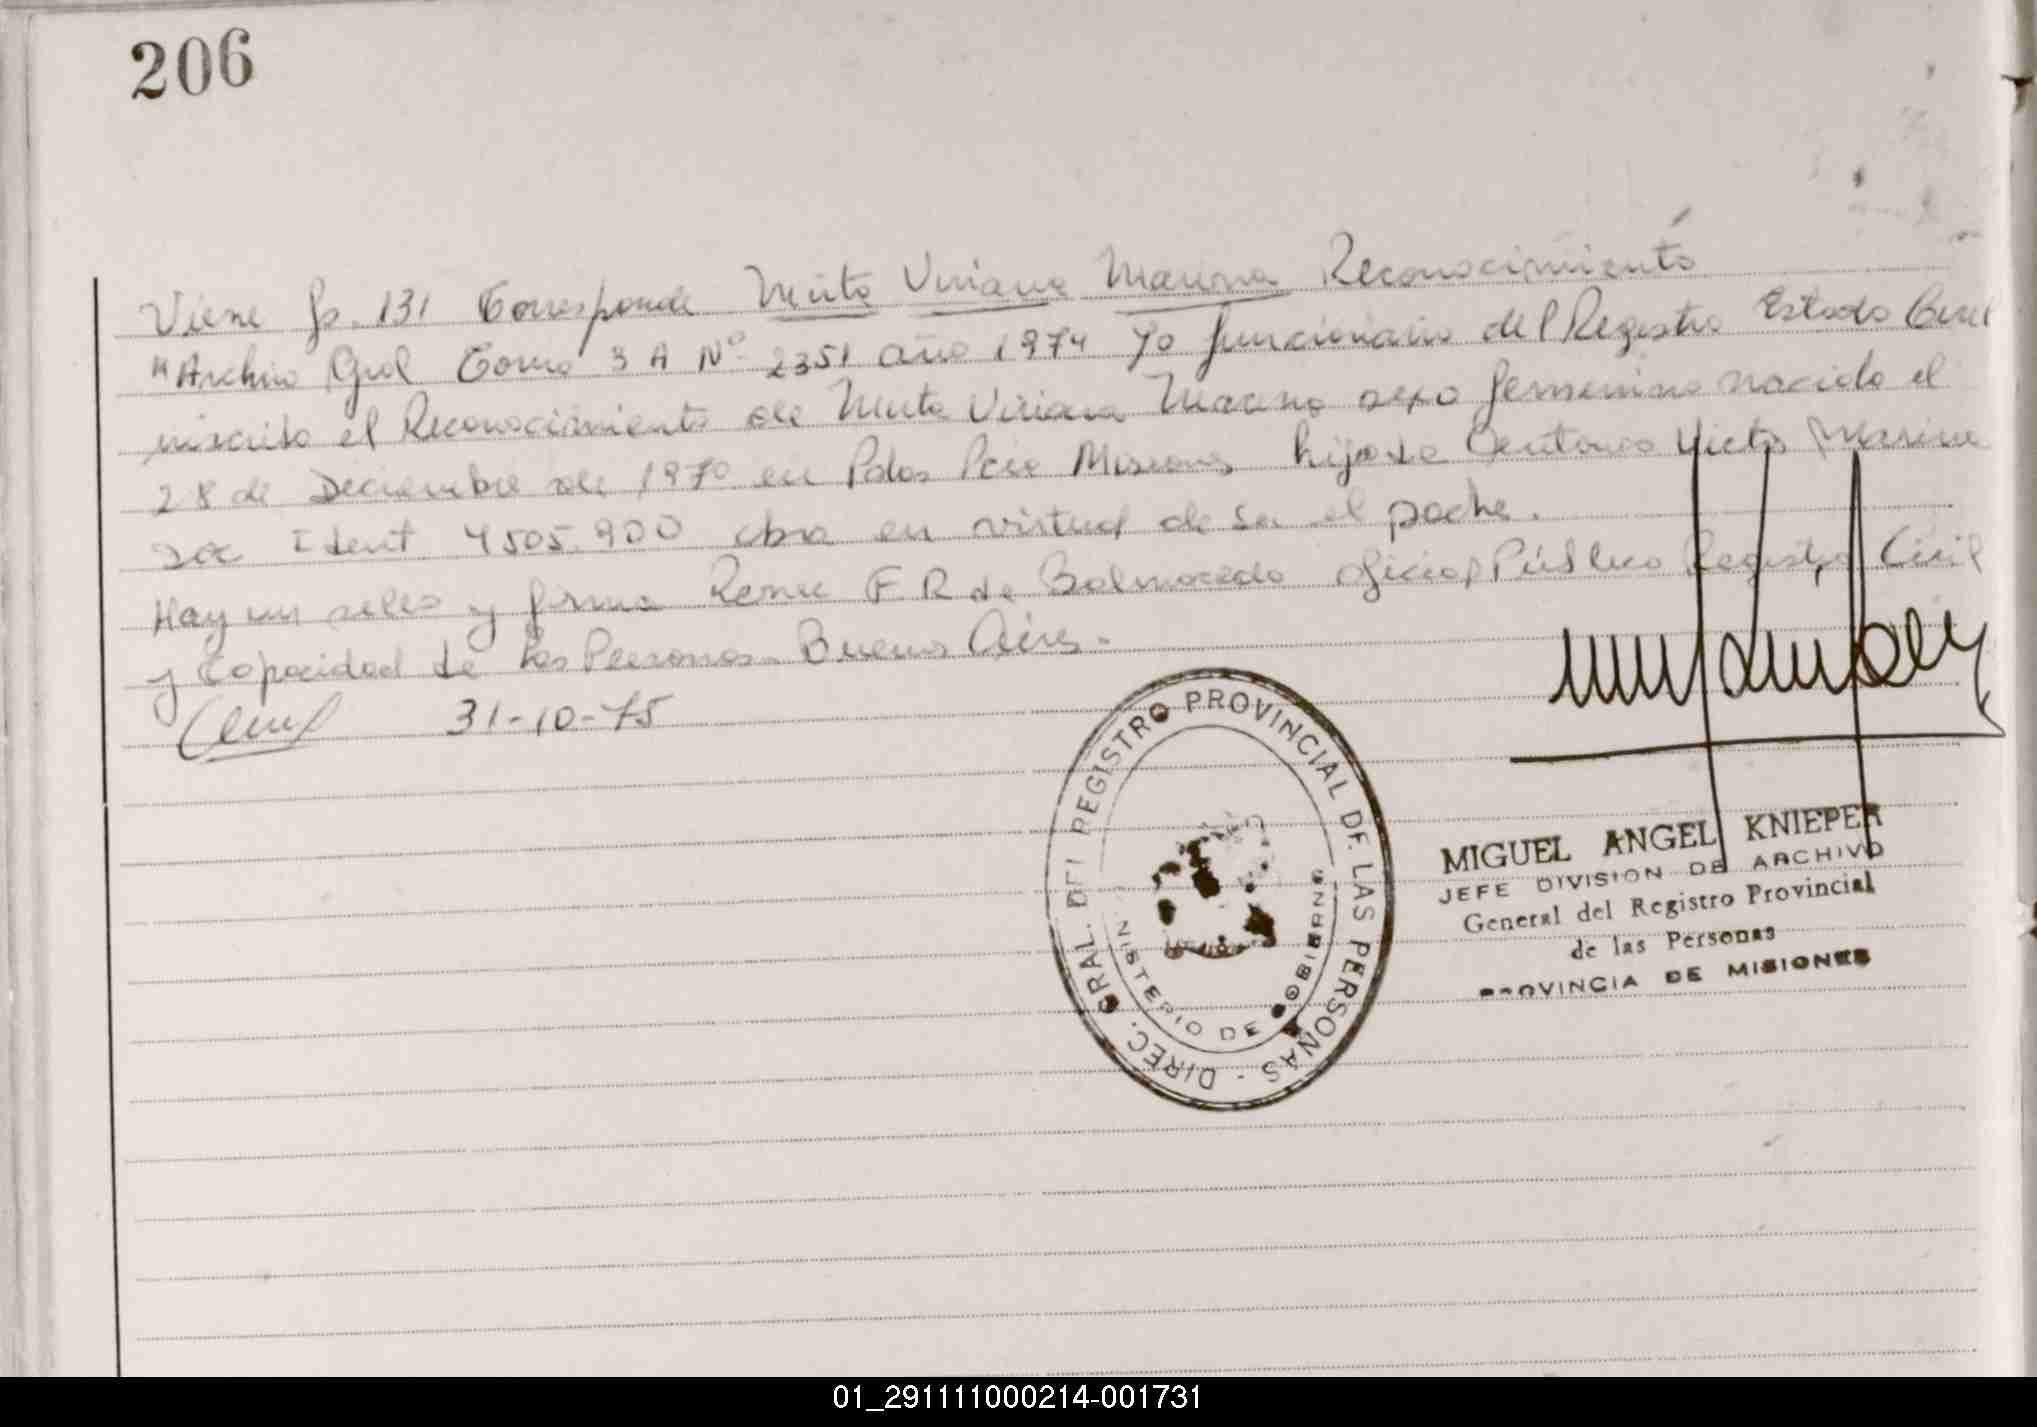 206
Viene fs. 131 Corresponde Mirta Viviana Marina Reconocimiento
"Archivo Gral Tomo 3 A Nº 2351 año 1974 Yo funcionario del Registro Estado Civil
inscribo el Reconocimiento de Mirta Viviana sexo femenino nacida el
28 de Diciembre de 1970 en Misiones hija de
Doc Ident 4505.900 obra en virtud de ser el padre.
Hay un sello y firma F R de Balmaceda Oficial Público Registro Civil
y Capacidad de las Personas - Buenos Aires.
31-10-75
DIREC. GRAL. DEL REGISTRO PROVINCIAL DE LAS PERSONAS -
MINISTERIO DE GOBIERNO
MIGUEL ANGEL KNIEPER
JEFE DIVISION DE ARCHIVO
General del Registro Provincial
de las Personas
PROVINCIA DE MISIONES
01_291111000214-001731